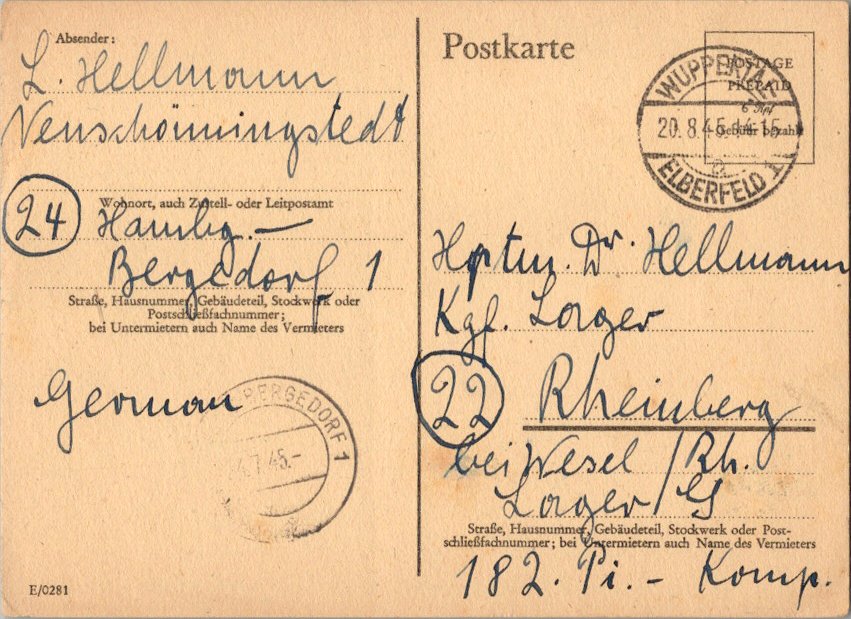 Absender:
L. Hellmann
Neuschönningstedt
Wohnort, auch Zustell- oder Leitpostamt
24 Hambg. —
Bergedorf 1
Straße, Hausnummer, Gebäudeteil, Stockwerk oder
Postschließfachnummer;
bei Untermietern auch Name des Vermieters
German
BERGEDORF 1
.7.45.-
E/0281
Postkarte
POSTAGE
PREPAID
6 Rpf
Gebühr bezahlt
WUPPERTAL-
20.8.45.14-15
ELBERFELD 1
Hptm. Dr. Hellmann
Kgf. Lager
22 Rheinberg
bei Wesel / Rh.
Lager /
Straße, Hausnummer, Gebäudeteil, Stockwerk oder Post-
schließfachnummer; bei Untermietern auch Name des Vermieters
182. Pi. - Komp.